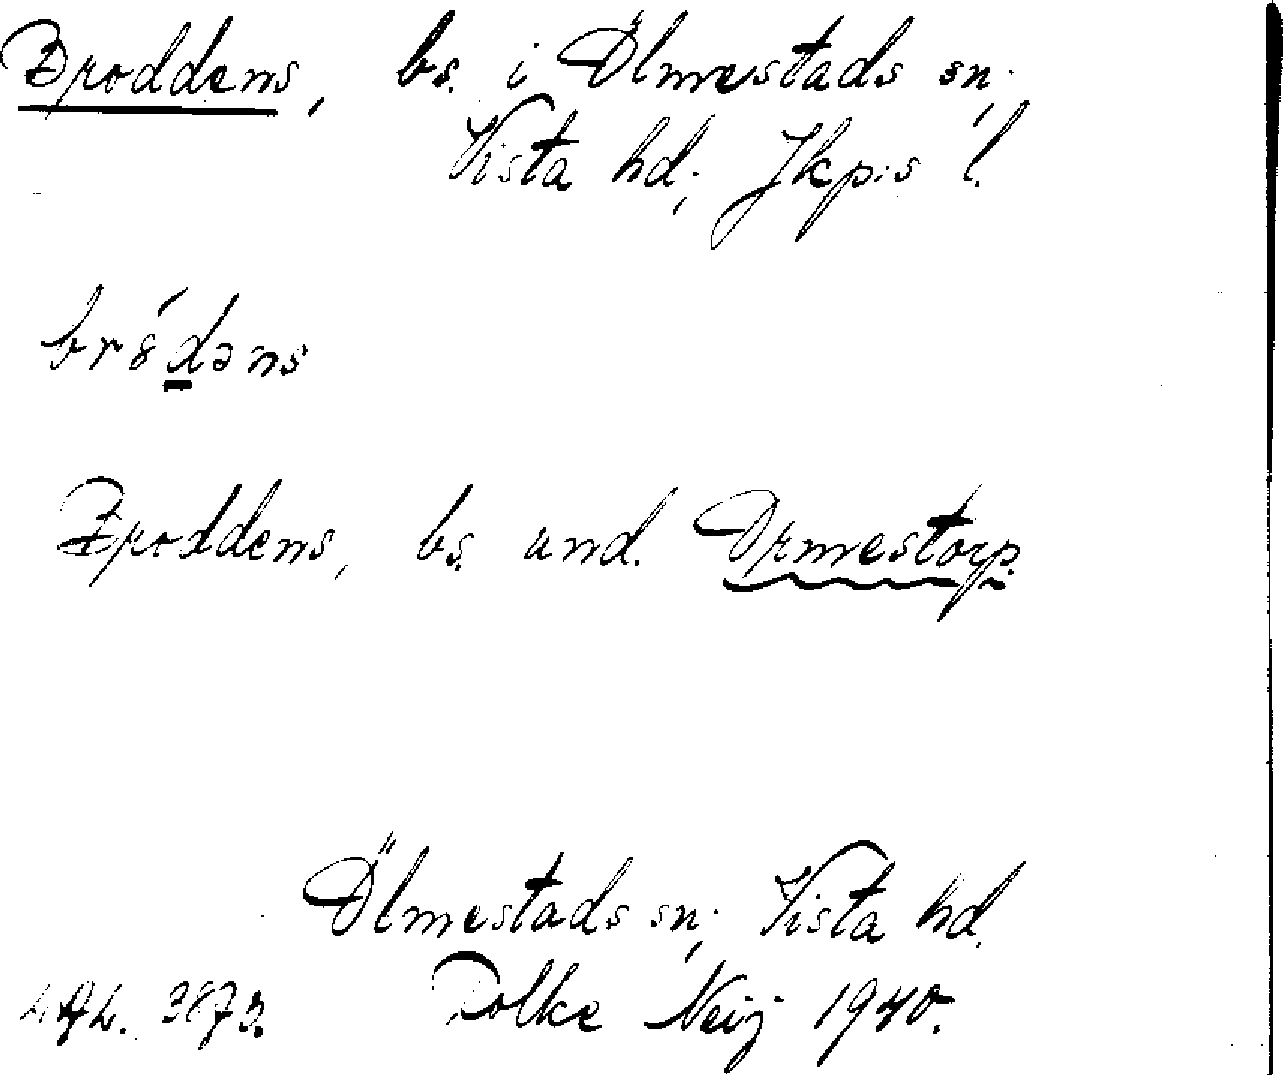 Broddens, bs. i Ölmestads sn.,
Vista hd., Jkp:s l.
bró̱dəns
Broddens, bs. und. Ormestorp.
Ölmestads sn., Vista hd.
Folke Neij 1940.